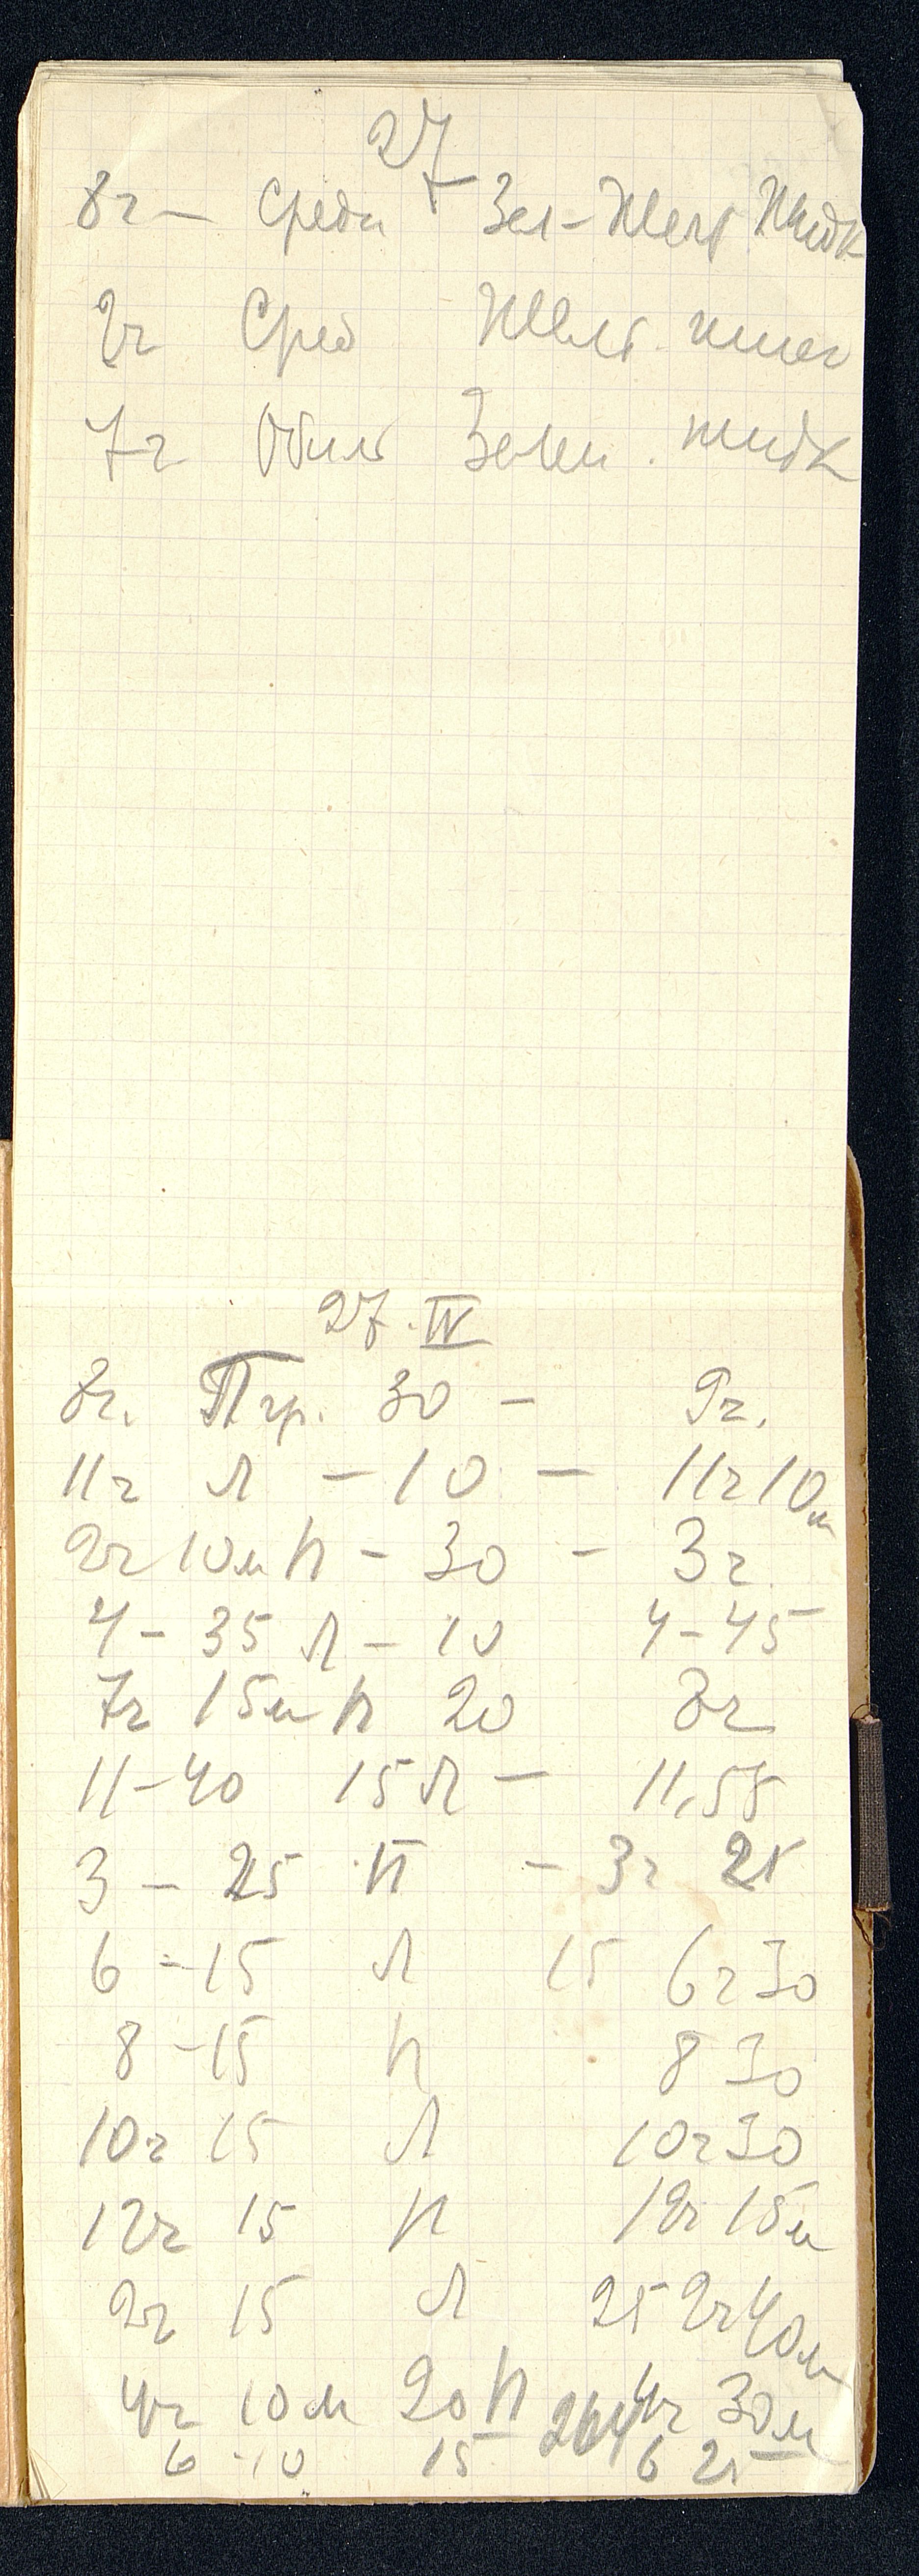 27
8ч – Средн Зел-Желт Жидк
2ч Сред Желт. кашец
7ч Обил Зелен. жидк
27.IV
8ч. П гр. 30 – 9ч.
11ч Л – 10 – 11ч 10м
2ч 10м П – 30 – 3ч
4 – 35 Л – 10 4 – 45
7ч 15м П 20 8ч
11 – 40 15 Л – 11,55
3 – 25 П – 3ч
6 – 15 Л 15 6ч 30
8 – 15 П 8 30
10ч 15 Л 10ч 30
12ч 15 П 12ч 15м
2ч 15 Л 25 2ч 40м
4ч 10м 20 П 4ч 30м
6 – 10 15 6 25